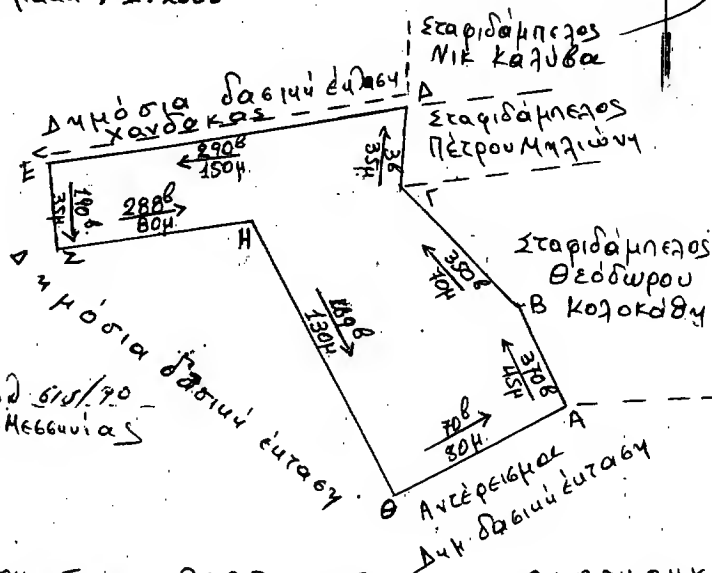 Σταφιδάμπελος
Νικ Καλύβα
Δημόσια δασική έκταση
χανδακας
Δ
Σταφιδάμπελος
Πέτρου Μηλιώνη
290β
150μ
36
35μ
Ε
190β.
35μ
288β
80μ
Γ
Ζ
Η
350β
70μ
Σταφιδάμπελος
Θεόδωρου
Κολοκάθη
Β
Δημόσια δασική έκταση
189β
130μ
370β
45μ
615/90
Μεσσηνίας
Α
70β
80μ.
Θ
Αντέρεισμα
Δημ. δασική έκταση